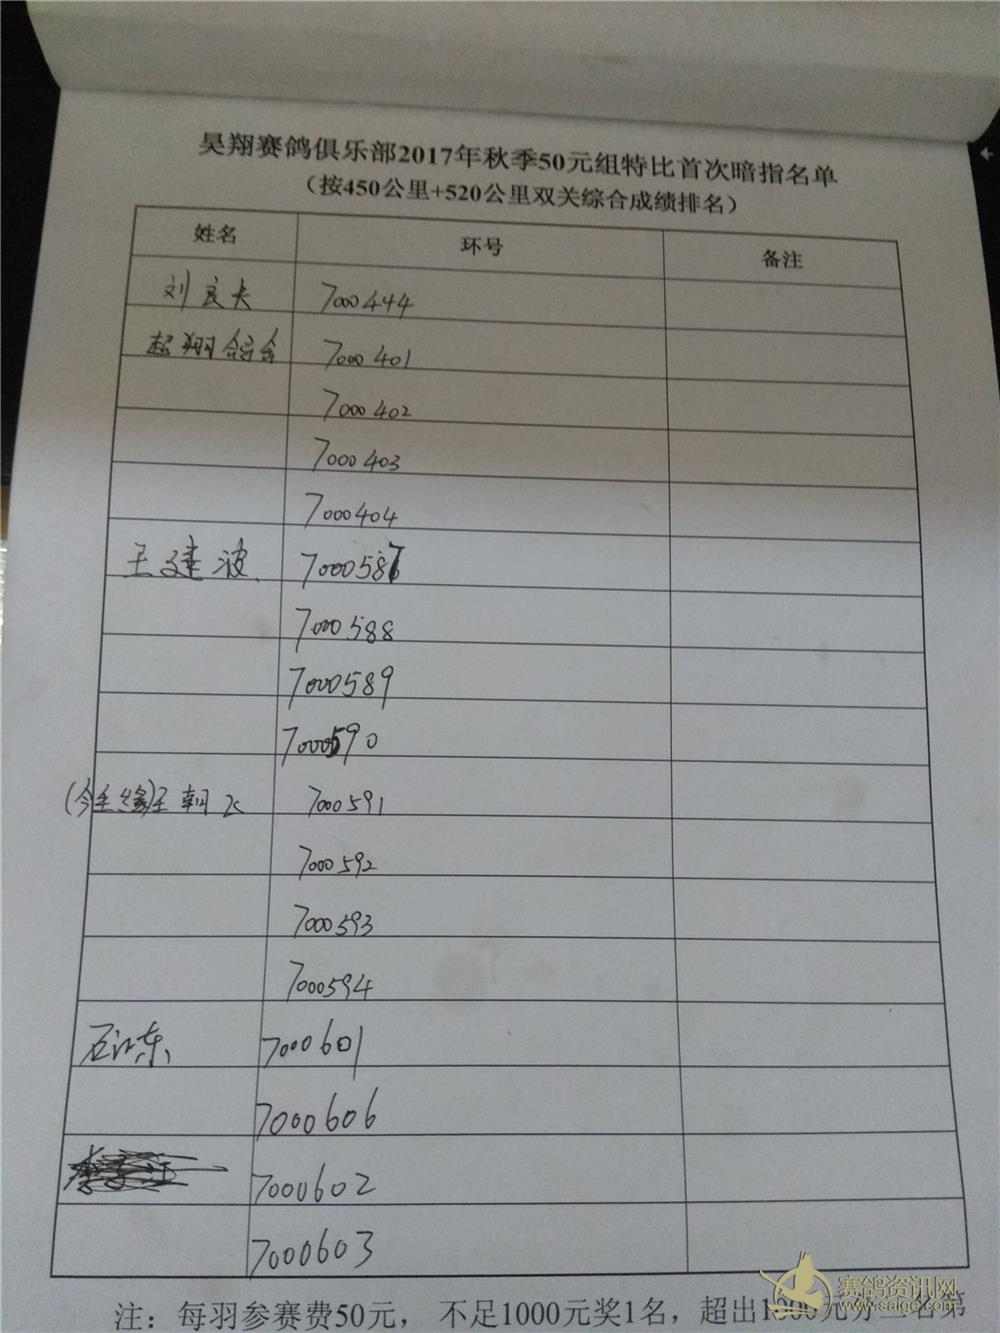 昊翔赛鸽俱乐部2017年秋季50元组特比首次暗指名单
（按450公里+520公里双关综合成绩排名）
姓名 环号 备注
刘良大 7000444
翔鸽舍 7000401
7000402
7000403
7000404
王建波 7000587
7000588
7000589
7000590
王朝 7000591
7000592
7000593
7000594
石江东 7000601
7000606
7000602
7000603
注：每羽参赛费50元， 不足1000元奖1名，超出1000元
赛鸽资讯网
www.saige.com